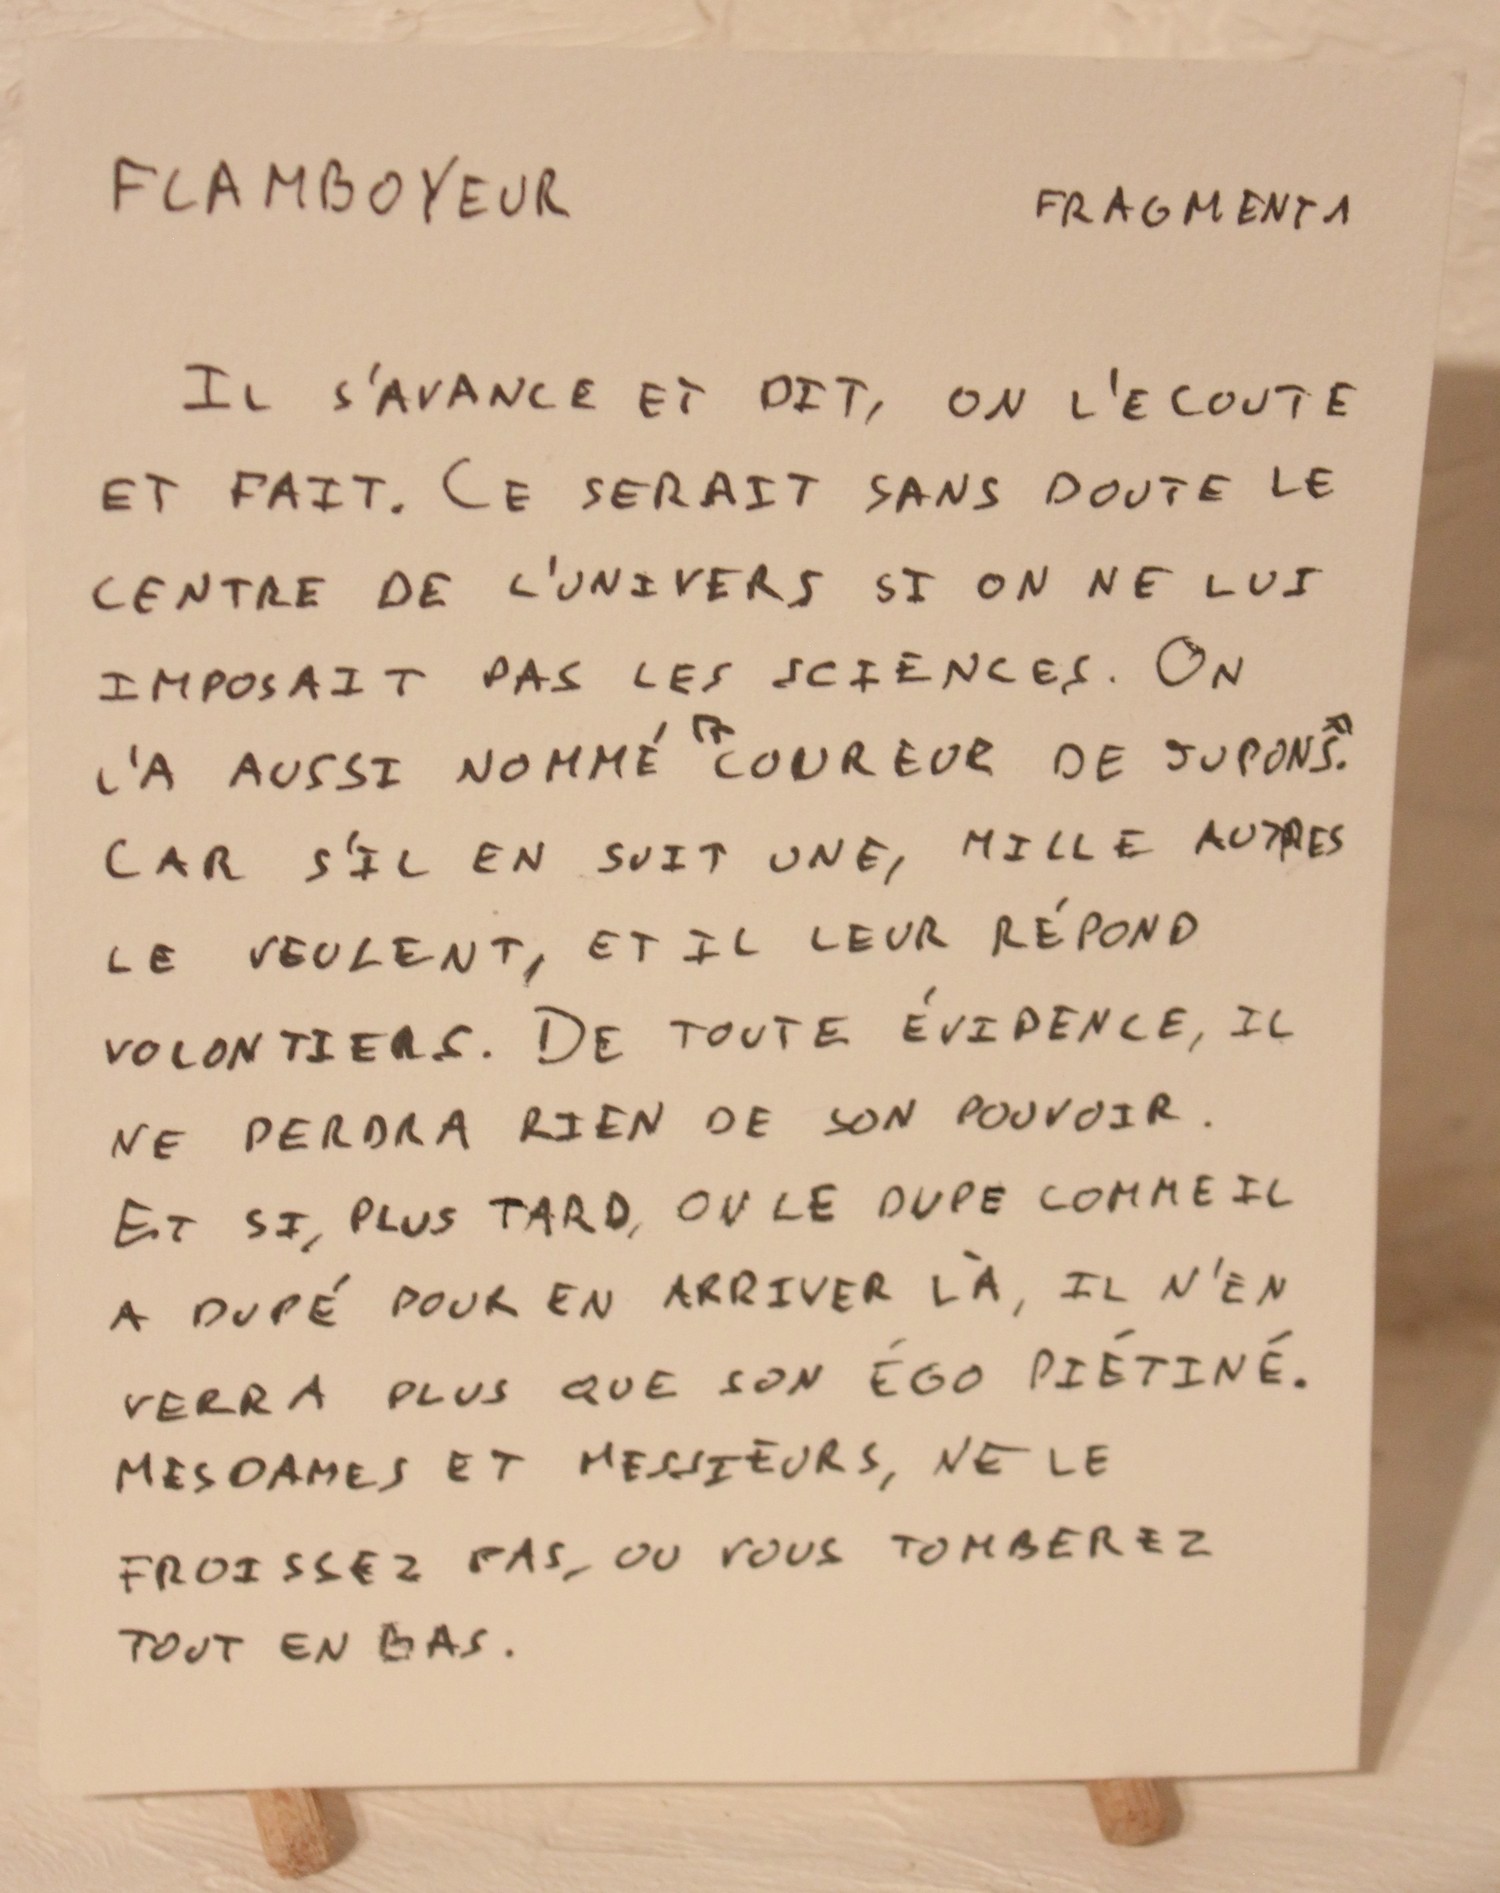 FLAMBOYEUR
FRAGMENT 1
IL S'AVANCE ET DIT, ON L'ECOUTE
ET FAIT. CE SERAIT SANS DOUTE LE
CENTRE DE L'UNIVERS SI ON NE LUI
IMPOSAIT PAS LES SCIENCES. ON
L'A AUSSI NOMMÉ "COUREUR DE JUPONS".
CAR S'IL EN SUIT UNE, MILLE AUTRES
LE VEULENT, ET IL LEUR RÉPOND
VOLONTIERS. DE TOUTE ÉVIDENCE, IL
NE PERDRA RIEN DE SON POUVOIR.
ET SI, PLUS TARD, ON LE DUPE COMME IL
A DUPÉ POUR EN ARRIVER LÀ, IL N'EN
VERRA PLUS QUE SON ÉGO PIÉTINÉ.
MESDAMES ET MESSIEURS, NE LE
FROISSEZ PAS, OU VOUS TOMBEREZ
TOUT EN BAS.